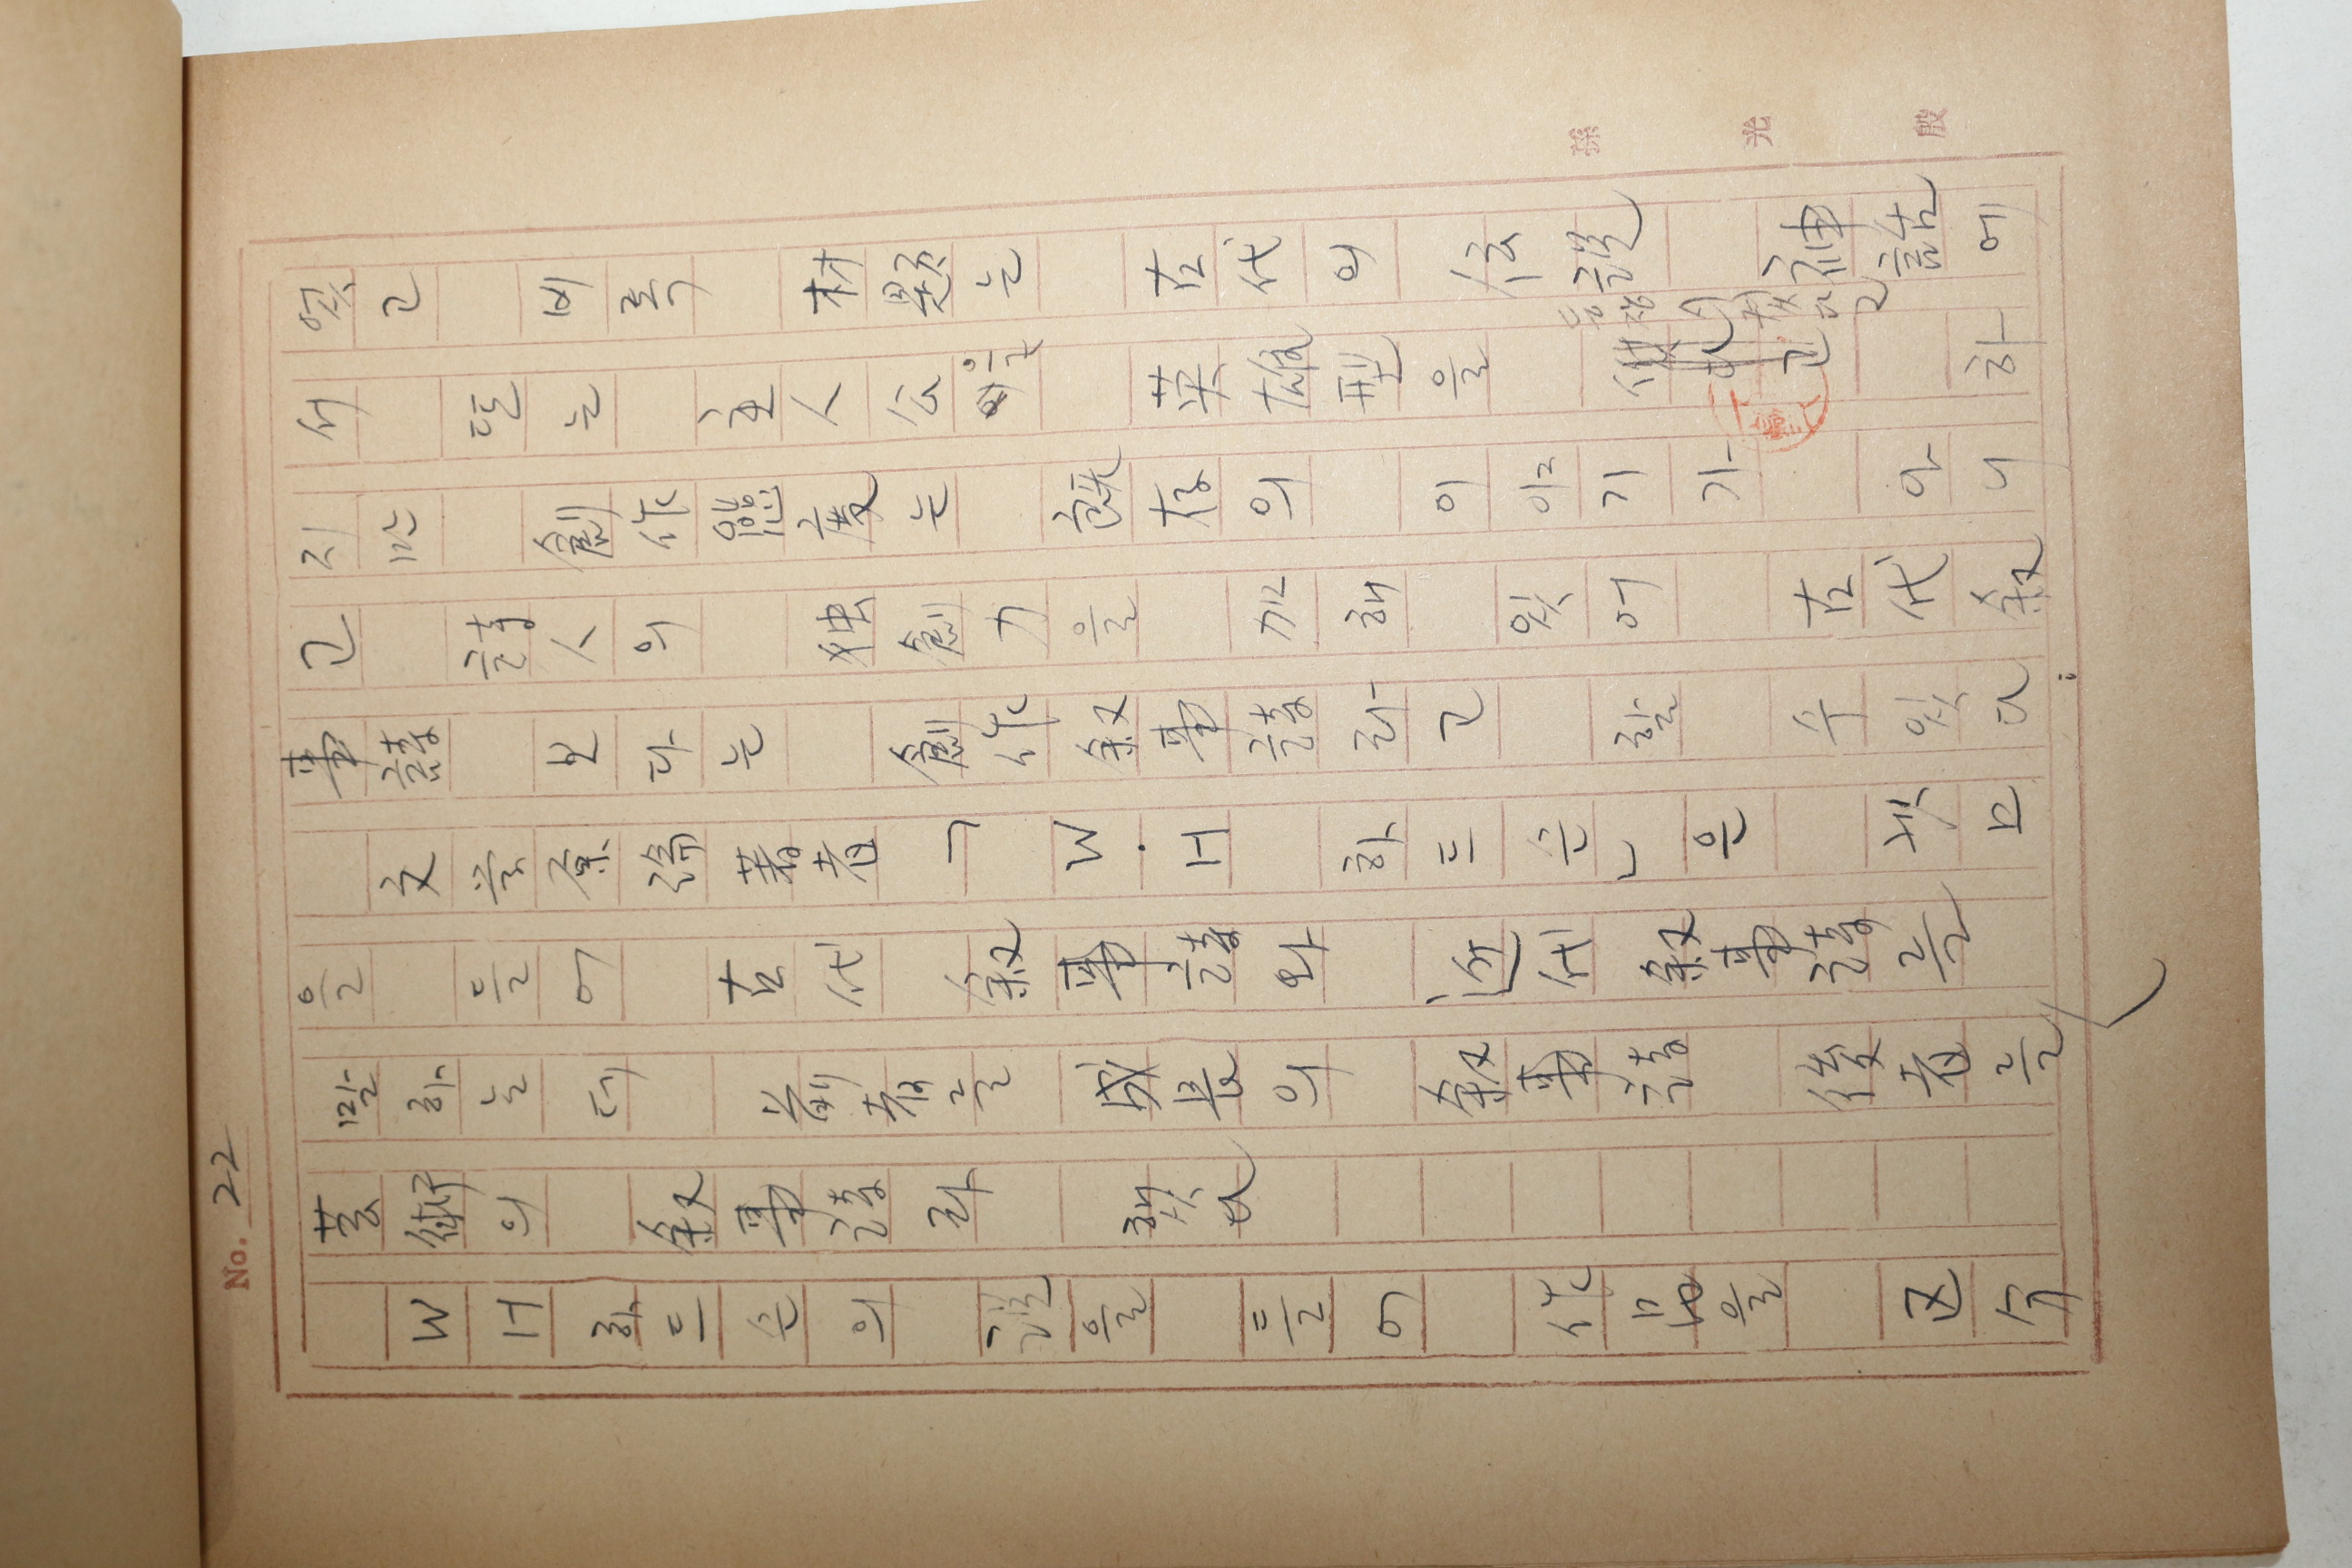 No. 22
엇고 비록 材題는 古代의 伝説 神話에
서 또는 主人公을 英雄型을 고 하
지만 創作態度는 旣存의 이야기가 아니
고 詩人의 独創力을 加해 있어 古代叙
事詩 보다는 創作叙事詩라고 할 수 있다
文学原論著者「W.H 하드슨」은 겟
을 들어 古代 叙事詩와 近代叙事詩를
말하는데 前者를 成長의 叙事詩 後者를
芸術의 叙事詩라 했다
WH하드슨의 説을 들어 作品을 区分
孫光殷